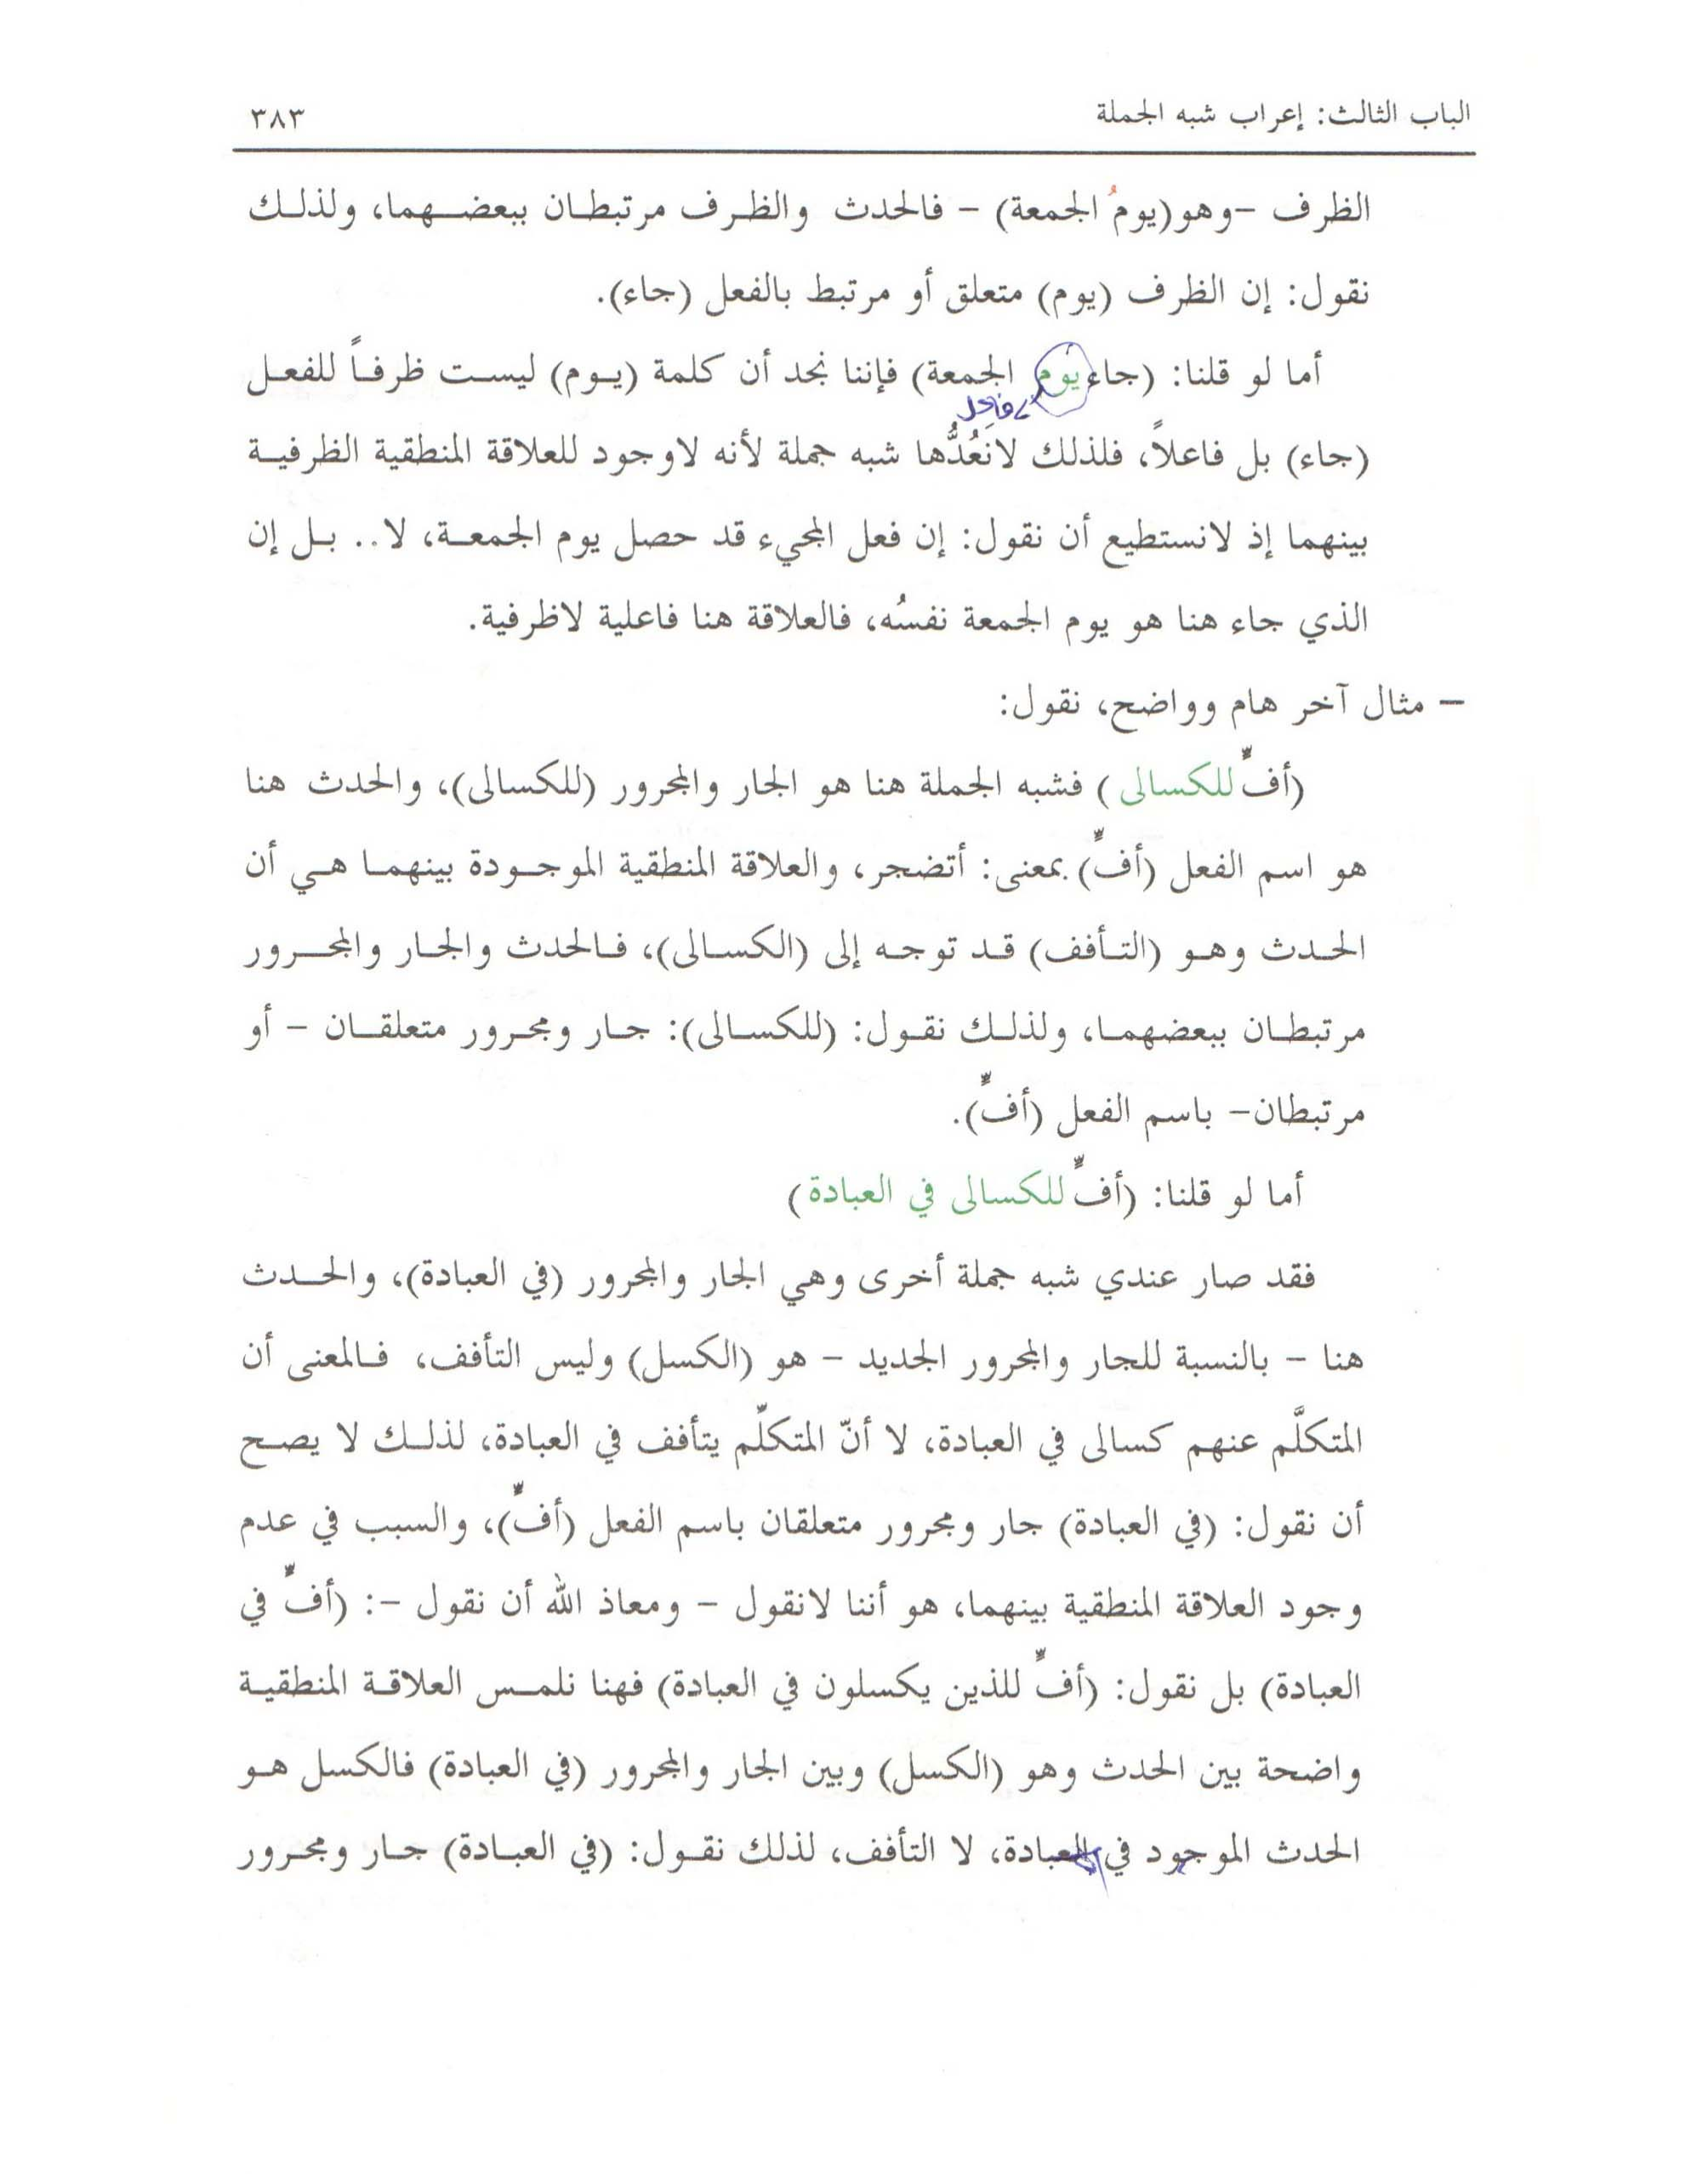 الباب الثالث: إعراب شبه الجملة ٣٨٣
الظرف -وهو(يومُ الجمعة) - فالحدث والظرف مرتبطان ببعضهما، ولذلك
نقول: إن الظرف (يوم) متعلق أو مرتبط بالفعل (جاء).
أما لو قلنا: (جاء يوم الجمعة) فإننا نجد أن كلمة (يوم) ليست ظرفاً للفعل
فاعل
(جاء) بل فاعلاً، فلذلك لانَعُدُّها شبه جملة لأنه لاوجود للعلاقة المنطقية الظرفية
بينهما إذ لانستطيع أن نقول: إن فعل المجيء قد حصل يوم الجمعة، لا.. بل إن
الذي جاء هنا هو يوم الجمعة نفسُه، فالعلاقة هنا فاعلية لاظرفية.
- مثال آخر هام وواضح، نقول:
(أفٍّ للكسالى) فشبه الجملة هنا هو الجار والمجرور (للكسالى)، والحدث هنا
هو اسم الفعل (أفٍّ) بمعنى: أتضجر، والعلاقة المنطقية الموجودة بينهما هي أن
الحدث وهو (التأفف) قد توجه إلى (الكسالى)، فالحدث والجار والمجرور
مرتبطان ببعضهما، ولذلك نقول: (للكسالى): جار ومجرور متعلقان - أو
مرتبطان- باسم الفعل (أفٍّ).
أما لو قلنا: (أفٍّ للكسالى في العبادة)
فقد صار عندي شبه جملة أخرى وهي الجار والمجرور (في العبادة)، والحدث
هنا - بالنسبة للجار والمجرور الجديد - هو (الكسل) وليس التأفف، فالمعنى أن
المتكلَّم عنهم كسالى في العبادة، لا أنّ المتكلّم يتأفف في العبادة، لذلك لا يصح
أن نقول: (في العبادة) جار ومجرور متعلقان باسم الفعل (أفٍّ)، والسبب في عدم
وجود العلاقة المنطقية بينهما، هو أننا لانقول - ومعاذ الله أن نقول -: (أفٍّ في
العبادة) بل نقول: (أفٍّ للذين يكسلون في العبادة) فهنا نلمس العلاقة المنطقية
واضحة بين الحدث وهو (الكسل) وبين الجار والمجرور (في العبادة) فالكسل هو
الحدث الموجود في العبادة، لا التأفف، لذلك نقول: (في العبادة) جار ومجرور